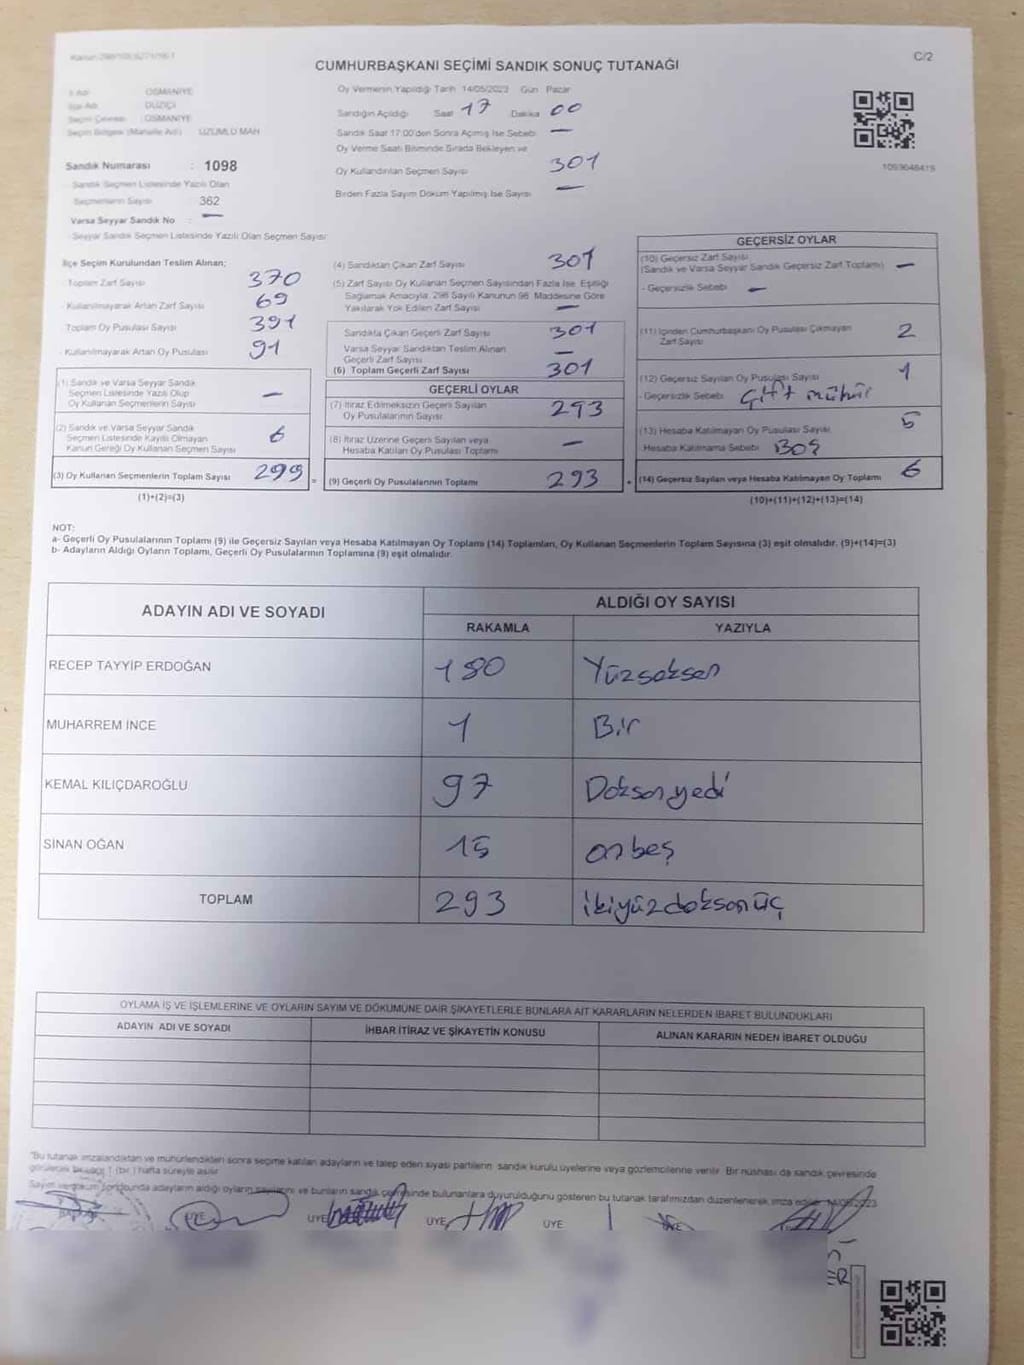 C/2
CUMHURBAŞKANI SEÇİMİ SANDIK SONUÇ TUTANAĞI
İl Adı : OSMANİYE
İlçe Adı : DÜZİÇİ
Seçim Çevresi : OSMANİYE
Seçim Bölgesi (Mahalle Adı) : ÜZÜMLÜ MAH
Sandık Numarası : 1098
- Sandık Seçmen Listesinde Yazılı Olan
Seçmenlerin Sayısı : 362
Varsa Seyyar Sandık No : —
- Seyyar Sandık Seçmen Listesinde Yazılı Olan Seçmen Sayısı
Oy Vermenin Yapıldığı Tarih 14/05/2023 Gün Pazar
Sandığın Açıldığı Saat 17 Dakika 00
Sandık Saat 17:00'den Sonra Açılmış İse Sebebi —
Oy Verme Saati Bitiminde Sırada Bekleyen ve
Oy Kullandırılan Seçmen Sayısı 301
Birden Fazla Sayım Döküm Yapılmış İse Sayısı —
İlçe Seçim Kurulundan Teslim Alınan;
- Toplam Zarf Sayısı 370
- Kullanılmayarak Artan Zarf Sayısı 69
- Toplam Oy Pusulası Sayısı 391
- Kullanılmayarak Artan Oy Pusulası 91
(1) Sandık ve Varsa Seyyar Sandık
Seçmen Listesinde Yazılı Olup
Oy Kullanan Seçmenlerin Sayısı —
(2) Sandık ve Varsa Seyyar Sandık
Seçmen Listesinde Kayıtlı Olmayan
Kanun Gereği Oy Kullanan Seçmen Sayısı 6
(3) Oy Kullanan Seçmenlerin Toplam Sayısı 299 =
(1)+(2)=(3)
(4) Sandıktan Çıkan Zarf Sayısı 301
(5) Zarf Sayısı Oy Kullanan Seçmen Sayısından Fazla İse, Eşitliği
Sağlamak Amacıyla, 298 Sayılı Kanunun 98. Maddesine Göre
Yakılarak Yok Edilen Zarf Sayısı —
Sandıkta Çıkan Geçerli Zarf Sayısı 301
Varsa Seyyar Sandıktan Teslim Alınan
Geçerli Zarf Sayısı —
(6) Toplam Geçerli Zarf Sayısı 301
GEÇERLİ OYLAR
(7) İtiraz Edilmeksizin Geçerli Sayılan
Oy Pusulalarının Sayısı 293
(8) İtiraz Üzerine Geçerli Sayılan veya
Hesaba Katılan Oy Pusulası Toplamı —
(9) Geçerli Oy Pusulalarının Toplamı 293 +
GEÇERSİZ OYLAR
(10) Geçersiz Zarf Sayısı
(Sandık ve Varsa Seyyar Sandık Geçersiz Zarf Toplamı) —
- Geçersizlik Sebebi —
(11) İçinden Cumhurbaşkanı Oy Pusulası Çıkmayan
Zarf Sayısı 2
(12) Geçersiz Sayılan Oy Pusulası Sayısı 1
- Geçersizlik Sebebi Çift mühür
(13) Hesaba Katılmayan Oy Pusulası Sayısı 5
Hesaba Katılmama Sebebi BOŞ
(14) Geçersiz Sayılan veya Hesaba Katılmayan Oy Toplamı 6
(10)+(11)+(12)+(13)=(14)
NOT:
a- Geçerli Oy Pusulalarının Toplamı (9) ile Geçersiz Sayılan veya Hesaba Katılmayan Oy Toplamı (14) Toplamları, Oy Kullanan Seçmenlerin Toplam Sayısına (3) eşit olmalıdır. (9)+(14)=(3)
b- Adayların Aldığı Oyların Toplamı, Geçerli Oy Pusulalarının Toplamına (9) eşit olmalıdır.
ADAYIN ADI VE SOYADI
ALDIĞI OY SAYISI
RAKAMLA YAZIYLA
RECEP TAYYİP ERDOĞAN 180 Yüzseksen
MUHARREM İNCE 1 Bir
KEMAL KILIÇDAROĞLU 97 Doksanyedi
SİNAN OĞAN 15 onbeş
TOPLAM 293 ikiyüzdoksanüç
OYLAMA İŞ VE İŞLEMLERİNE VE OYLARIN SAYIM VE DÖKÜMÜNE DAİR ŞİKAYETLERLE BUNLARA AİT KARARLARIN NELERDEN İBARET BULUNDUKLARI
ADAYIN ADI VE SOYADI İHBAR İTİRAZ VE ŞİKAYETİN KONUSU ALINAN KARARIN NEDEN İBARET OLDUĞU
"Bu tutanak imzalandıktan ve mühürlendikten sonra seçime katılan adayların ve talep eden siyasi partilerin sandık kurulu üyelerine veya gözlemcilerine verilir. Bir nüshası da sandık çevresinde
görülecek bir yere 1 (bir) hafta süreyle asılır.
Sayım ve döküm sonucunda adayların aldığı oyların sayılarını ve bunların sandık çevresinde bulunanlara duyurulduğunu gösteren bu tutanak tarafımızdan düzenlenerek imza edildi. 14/05/2023
ÜYE ÜYE ÜYE ÜYE ÜYE